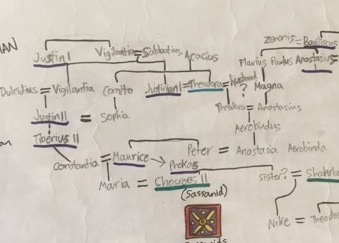 zenonis = Basiliscus
IAN Justin I Vigilantia = Sabbatius Acacius
Flavius Paulus Anastasius =
Dulcidius = Vigilantia Comito Justinian I = Theodora = husband ? Magna
Theodora = Anastasius
Justin II = Sophia
Areobindus
Tiberius II
Peter = Anastasia Areobinda
Constantia = Maurice → Phokas
sister? = Shahrba
Maria = Chosroes II
(Sassanid)
Nike = Theodo